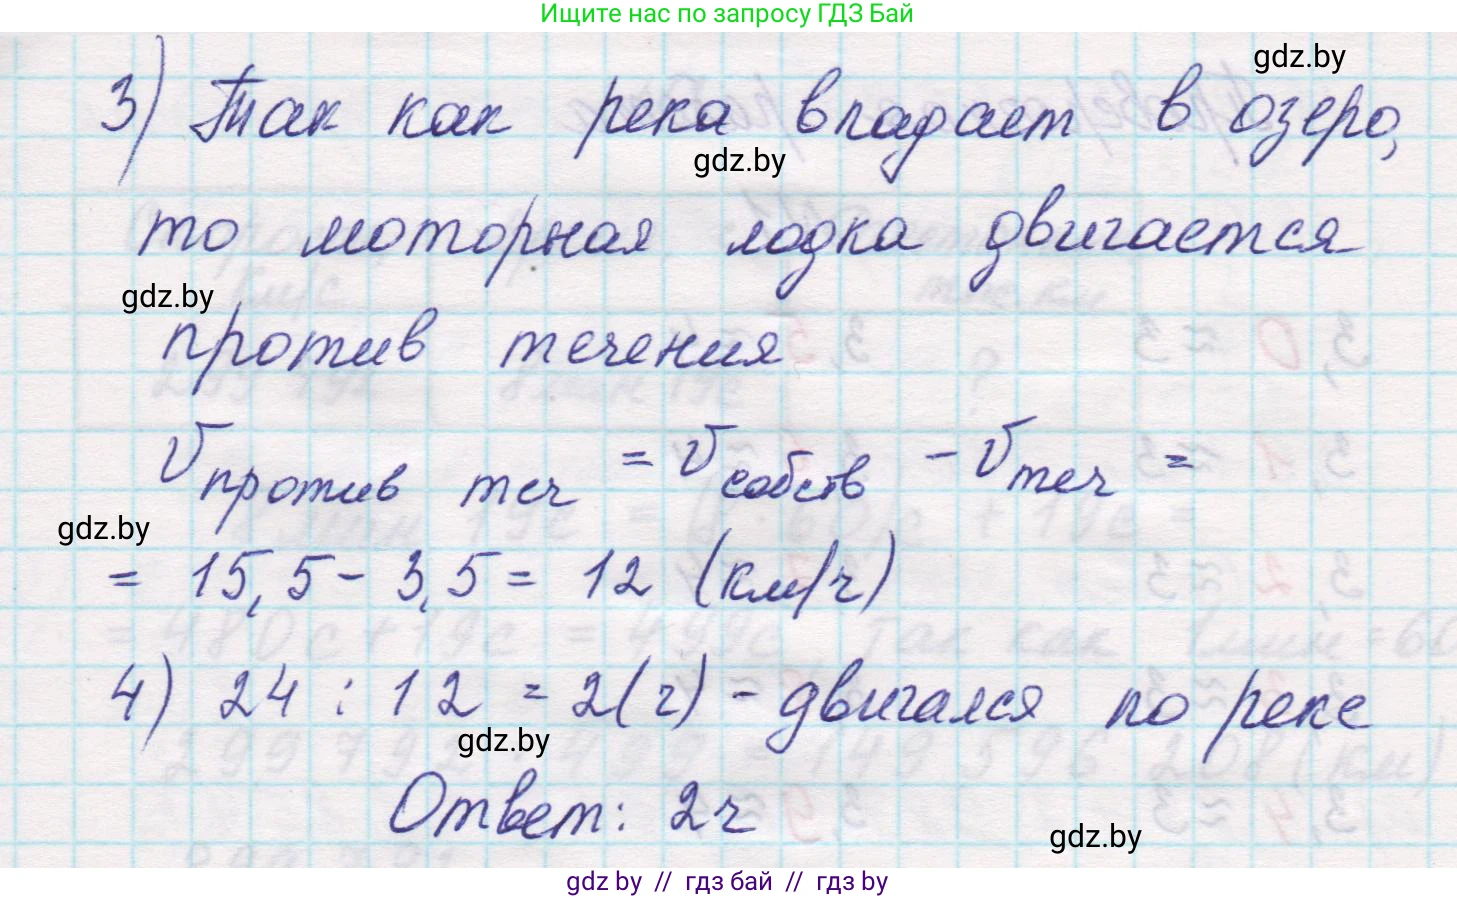 Ищите нас по запросу ГДЗ Бай
gdz.by
3) Так как река впадает в озеро,
gdz.by
то моторная лодка двигается
gdz.by
против течения
v против теч = v собств - v теч =
gdz.by
= 15,5 - 3,5 = 12 (км/ч)
4) 24 : 12 = 2(ч) - двигался по реке
gdz.by
Ответ: 2ч
gdz.by
gdz by // гдз бай // гдз by